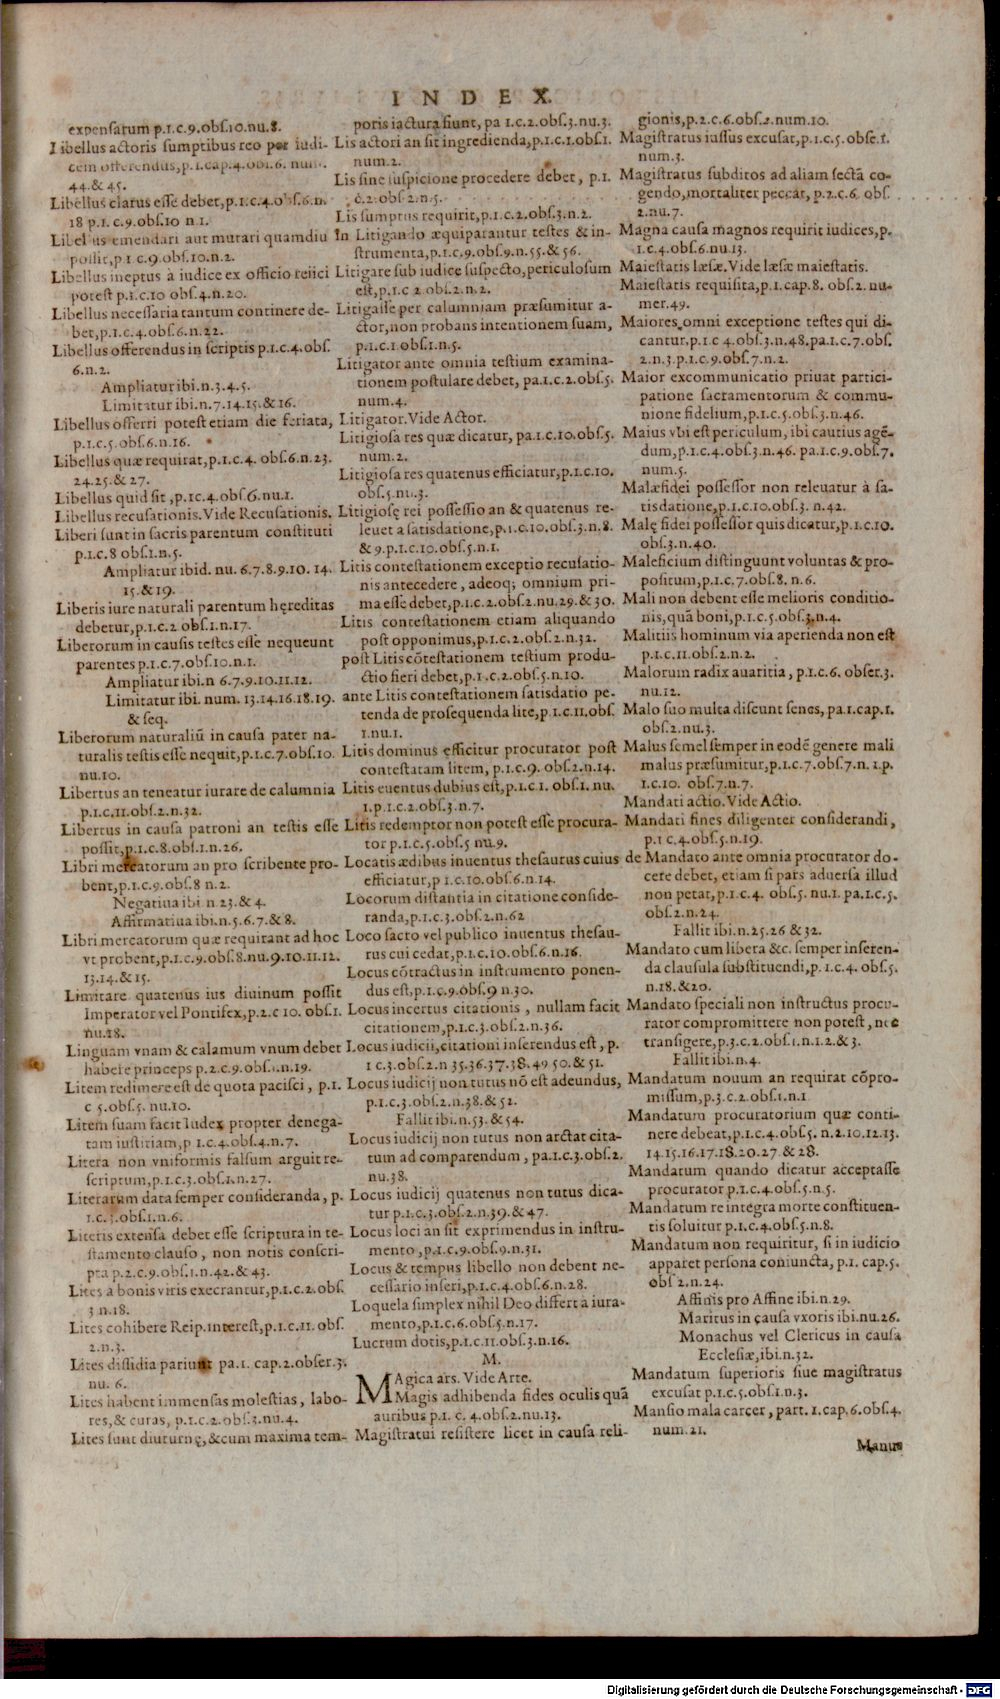 INDEX.
expensarum p.1.c.9.obs.10.nu.8.
Libellus actoris sumptibus reo per iudi-
cem offerendus, p.1.cap.4.obs.6. num.
44.& 45.
Libellus clarus esse debet, p.1.c.4.obs.6.n.
18 p.1.c.9.obs.10 n.1.
Libellus emendari aut mutari quamdiu
possit, p.1 c.9.obs.10.n.2.
Libellus ineptus à iudice ex officio reiici
potest p.1.c.10 obs.4.n.20.
Libellus necessaria tantum continere de-
bet, p.1.c.4.obs.6.n.22.
Libellus offerendus in scriptis p.1.c.4.obs.
6.n.2.
Ampliatur ibi.n.3.4.5.
Limitatur ibi.n.7.14.15.& 16.
Libellus offerri potest etiam die feriata,
p.1.c.5.obs.6.n.16.
Libellus quæ requirat, p.1.c.4. obs.6.n.23.
24.25.& 27.
Libellus quid sit, p.1c.4.obs.6.nu.1.
Libellus recusationis. Vide Recusationis.
Liberi sunt in sacris parentum constituti
p.1.c.8 obs.1.n.5.
Ampliatur ibid. nu. 6.7.8.9.10. 14.
15.& 19.
Liberis iure naturali parentum hęreditas
debetur, p.1.c.2 obs.1.n.17.
Liberorum in causis testes esse nequeunt
parentes p.1.c.7.obs.10.n.1.
Ampliatur ibi.n 6.7.9.10.11.12.
Limitatur ibi. num. 13.14.16.18.19.
& seq.
Liberorum naturaliũ in causa pater na-
turalis testis esse nequit, p.1.c.7.obs.10.
nu.10.
Libertus an teneatur iurare de calumnia
p.1.c.11.obs.2.n.32.
Libertus in causa patroni an testis esse
possit, p.1.c.8.obs.1.n.26.
Libri mercatorum an pro scribente pro-
bent, p.1.c.9.obs.8 n.2.
Negatiua ibi n 23.& 4.
Affirmatiua ibi.n.5.6.7.& 8.
Libri mercatorum quæ requirant ad hoc
vt probent, p.1.c.9.obs.8.nu.9.10.11.12.
13.14.& 15.
Limitare quatenus ius diuinum possit
Imperator vel Pontifex, p.2.c 10. obs.1.
nu.28.
Linguam vnam & calamum vnum debet
habere princeps p.2.c.9.obs.1.n.19.
Litem redimere est de quota pacisci, p.1.
c 5.obs.5. nu.10.
Litem suam facit Iudex propter denega-
tam iustitiam, p 1.c.4.obs.4.n.7.
Litera non vniformis falsum arguit re-
scriptum, p.1.c.3.obs.1.n.27.
Literarum data semper consideranda, p.
1.c.3.obs.1.n.6.
Literis extensa debet esse scriptura in te-
stamento clauso, non notis conscri-
pta p.2.c.9.obs.1.n.42.& 43.
Lites à bonis viris execrantur, p.1.c.2.obs.
3 n.18.
Lites cohibere Reip. interest, p.1.c.11. obs.
2.n.3.
Lites dissidia pariunt pa.1. cap.2.obser.3.
nu. 6.
Lites habent immensas molestias, labo-
res, & curas, p.1.c.2.obs.3.nu.4.
Lites sunt diuturnę, & cum maxima tem-
poris iactura fiunt, pa 1.c.2.obs.3.nu.3.
Lis actori an sit ingredienda, p.1.c.1.obs.1.
num.2.
Lis sine suspicione procedere debet, p.1.
c.2.obs 2.n.5.
Lis sumptus requirit, p.1.c.2.obs.3.n.2.
In Litigando æquiparantur testes & in-
strumenta, p.1.c.9.obs.9.n.55.& 56.
Litigare sub iudice suspecto, periculosum
est, p.1.c 2 obs.2.n.2.
Litigasse per calumniam præsumitur a-
ctor, non probans intentionem suam,
p.1.c.1.obs.1.n.5.
Litigator ante omnia testium examina-
tionem postulare debet, pa.1.c.2.obs.5.
num.4.
Litigator. Vide Actor.
Litigiosa res quæ dicatur, pa.1.c.10.obs.5.
num.2.
Litigiosa res quatenus efficiatur, p.1.c.10.
obs.5.nu.3.
Litigiosę rei possessio an & quatenus re-
leuet a satisdatione, p.1.c.10.obs.3.n.8.
& 9.p.1.c.10.obs.5.n.1.
Litis contestationem exceptio recusatio-
nis antecedere, adeoq; omnium pri-
ma esse debet, p.1.c.2.obs.2.nu.29.& 30.
Litis contestationem etiam aliquando
post opponimus, p.1.c.2.obs.2.n.32.
post Litis cõtestationem testium produ-
ctio fieri debet, p.1.c.2.obs.5.n.10.
ante Litis contestationem satisdatio pe-
tenda de prosequenda lite, p.1.c.11.obs.
1.nu.1.
Litis dominus efficitur procurator post
contestatam litem, p.1.c.9. obs.2.n.14.
Litis euentus dubius est, p.1.c 1. obs.1. nu.
1.p.1.c.2.obs.3.n.7.
Litis redemptor non potest esse procura-
tor p.1.c.5.obs.5 nu.9.
Locatis ædibus inuentus thesaurus cuius
efficiatur, p 1.c.10.obs.6.n.14.
Locorum distantia in citatione conside-
randa, p.1.c.3.obs.2.n.62
Loco sacro vel publico inuentus thesau-
rus cui cedat, p.1.c.10.obs.6.n.16.
Locus cõtractus in instrumento ponen-
dus est, p.1.c.9.obs.9 n.30.
Locus incertus citationis, nullam facit
citationem, p.1.c.3.obs.2.n.36.
Locus iudicii, citationi inserendus est, p.
1 c.3.obs.2.n 35.36.37.38.49 50.& 51.
Locus iudicij non tutus nõ est adeundus,
p.1.c.3.obs.2.n.38.& 52.
Fallit ibi.n.53.& 54.
Locus iudicij non tutus non arctat cita-
tum ad comparendum, pa.1.c.3.obs.2.
nu.38.
Locus iudicij quatenus non tutus dica-
tur p.1.c.3.obs.2.n.39.& 47.
Locus loci an sit exprimendus in instru-
mento, p.1.c.9.obs.9.n.31.
Locus & tempus libello non debent ne-
cessario inseri, p.1.c.4.obs.6.n.28.
Loquela simplex nihil Deo differt à iura-
mento, p.1.c.6.obs.5.n.17.
Lucrum dotis, p.1.c.11.obs.3.n.16.
M.
MAgica ars. Vide Arte.
Magis adhibenda fides oculis quã
auribus p.1. c. 4.obs.2.nu.13.
Magistratui resistere licet in causa reli-
gionis, p.2.c.6.obs.2.num.10.
Magistratus iussus excusat, p.1.c.5.obse.1.
num.3.
Magistratus subditos ad aliam sectã co-
gendo, mortaliter peccat, p.2.c.6. obs.
2.nu.7.
Magna causa magnos requirit iudices, p.
1.c.4.obs.6.nu.13.
Maiestatis læsæ. Vide læsæ maiestatis.
Maiestatis requisita, p.1.cap.8. obs.2. nu-
mer.49.
Maiores omni exceptione testes qui di-
cantur, p.1.c 4.obs.3.n.48.pa.1.c.7.obs.
2.n.3.p.1.c.9.obs.7.n.2.
Maior excommunicatio priuat partici-
patione sacramentorum & commu-
nione fidelium, p.1.c.5.obs.3.n.46.
Maius vbi est periculum, ibi cautius agẽ-
dum, p.1.c.4.obs.3.n.46. pa.1.c.9.obs.7.
num.5.
Malæfidei possessor non releuatur à sa-
tisdatione, p.1.c.10.obs.3. n.42.
Malę fidei possessor quis dicatur, p.1.c.10.
obs.3.n.40.
Maleficium distinguunt voluntas & pro-
positum, p.1.c.7.obs.8. n.6.
Mali non debent esse melioris conditio-
nis, quã boni, p.1.c.5.obs.3.n.4.
Malitiis hominum via aperienda non est
p.1.c.11.obs.2.n.2.
Malorum radix auaritia, p.1.c.6. obser.3.
nu.12.
Malo suo multa discunt senes, pa.1.cap.1.
obs.2.nu.3.
Malus semel semper in eodẽ genere mali
malus præsumitur, p.1.c.7.obs.7.n. 1.p.
1.c.10. obs.7.n.7.
Mandati actio. Vide Actio.
Mandati fines diligenter considerandi,
p.1 c.4.obs.5.n.19.
de Mandato ante omnia procurator do-
cere debet, etiam si pars aduersa illud
non petat, p.1.c.4. obs.5. nu.1. pa.1.c.5.
obs.2.n.24.
Fallit ibi.n.25.26 & 32.
Mandato cum libera &c. semper inseren-
da clausula substituendi, p.1.c.4. obs.5.
n.18.&20.
Mandato speciali non instructus procu-
rator compromittere non potest, nec
transigere, p.3.c.2.obs.1.n.1.2.& 3.
Fallit ibi.n.4.
Mandatum nouum an requirat cõpro-
missum, p.3.c.2.obs.1.n.1
Mandatum procuratorium quæ conti-
nere debeat, p.1.c.4.obs.5. n.2.10.12.13.
14.15.16.17.18.20.27.& 28.
Mandatum quando dicatur acceptasse
procurator p.1.c.4.obs.5.n.5.
Mandatum re integra morte constituen-
tis soluitur p.1.c.4.obs.5.n.8.
Mandatum non requiritur, si in iudicio
apparet persona coniuncta, p.1. cap.5.
obs 2.n.24.
Affinis pro Affine ibi.n.29.
Maritus in causa vxoris ibi.nu.26.
Monachus vel Clericus in causa
Ecclesiæ, ibi.n.32.
Mandatum superioris siue magistratus
excusat p.1.c.5.obs.1.n.3.
Mansio mala carcer, part. 1.cap.6.obs.4.
num.21.
Manus
Digitalisierung gefördert durch die Deutsche Forschungsgemeinschaft - DFG